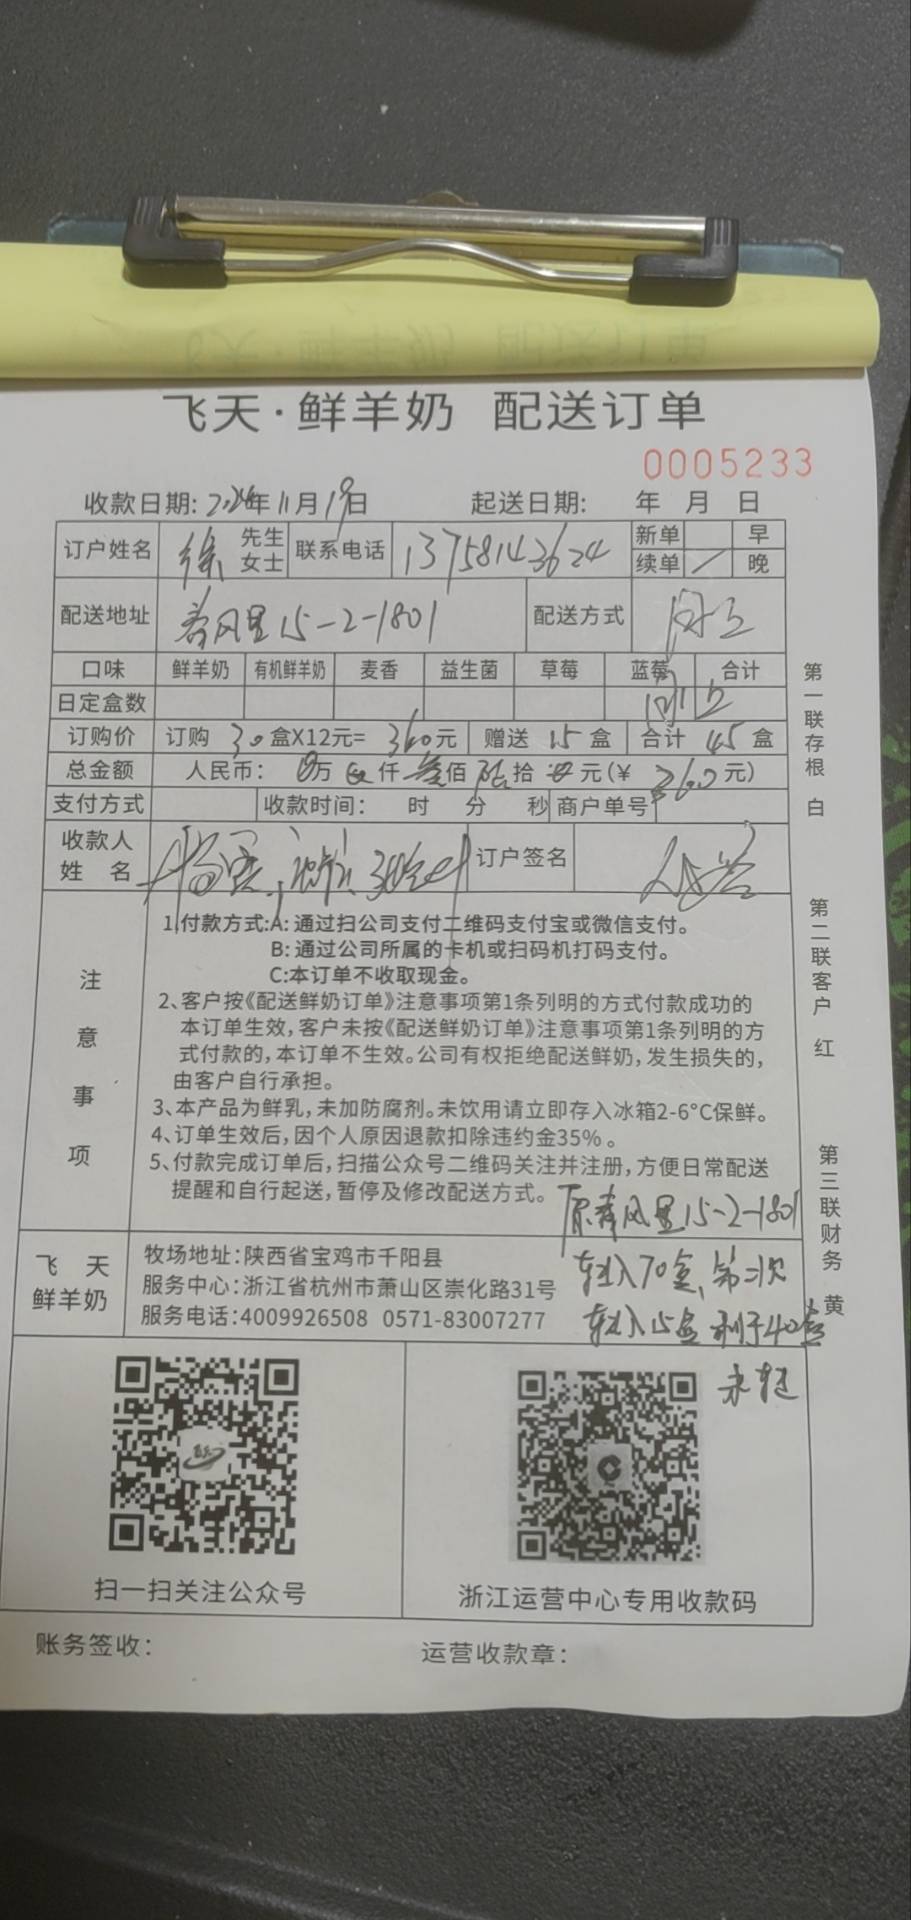 飞天·鲜羊奶 配送订单
0005233
收款日期: 2024年11月19日 起送日期: 年 月 日
订户姓名 徐 先生 女士 联系电话 13758143624 新单 早
续单 / 晚
配送地址 春风里15-2-1801 配送方式
口味 鲜羊奶 有机鲜羊奶 麦香 益生菌 草莓 蓝莓 合计
日定盒数
订购价 订购 30 盒X12元= 360元 赠送 15 盒 合计 45 盒
总金额 人民币: 0万 仟 叁佰 陆拾 元(¥ 360元)
支付方式 收款时间: 时 分 秒 商户单号
收款人
姓 名 订户签名
注意事项
1,付款方式:A:通过扫公司支付二维码支付宝或微信支付。
B:通过公司所属的卡机或扫码机打码支付。
C:本订单不收取现金。
2、客户按《配送鲜奶订单》注意事项第1条列明的方式付款成功的
本订单生效,客户未按《配送鲜奶订单》注意事项第1条列明的方
式付款的,本订单不生效。公司有权拒绝配送鲜奶,发生损失的,
由客户自行承担。
3、本产品为鲜乳,未加防腐剂。未饮用请立即存入冰箱2-6°C保鲜。
4、订单生效后,因个人原因退款扣除违约金35%。
5、付款完成订单后,扫描公众号二维码关注并注册,方便日常配送
提醒和自行起送,暂停及修改配送方式。
原春风里15-2-1801
转入70盒,第二次
转入15盒 剩于40盒
未转
飞 天
鲜羊奶
牧场地址:陕西省宝鸡市千阳县
服务中心:浙江省杭州市萧山区崇化路31号
服务电话:4009926508 0571-83007277
扫一扫关注公众号
浙江运营中心专用收款码
账务签收:
运营收款章:
第一联存根 白
第二联客户 红
第三联财务 黄